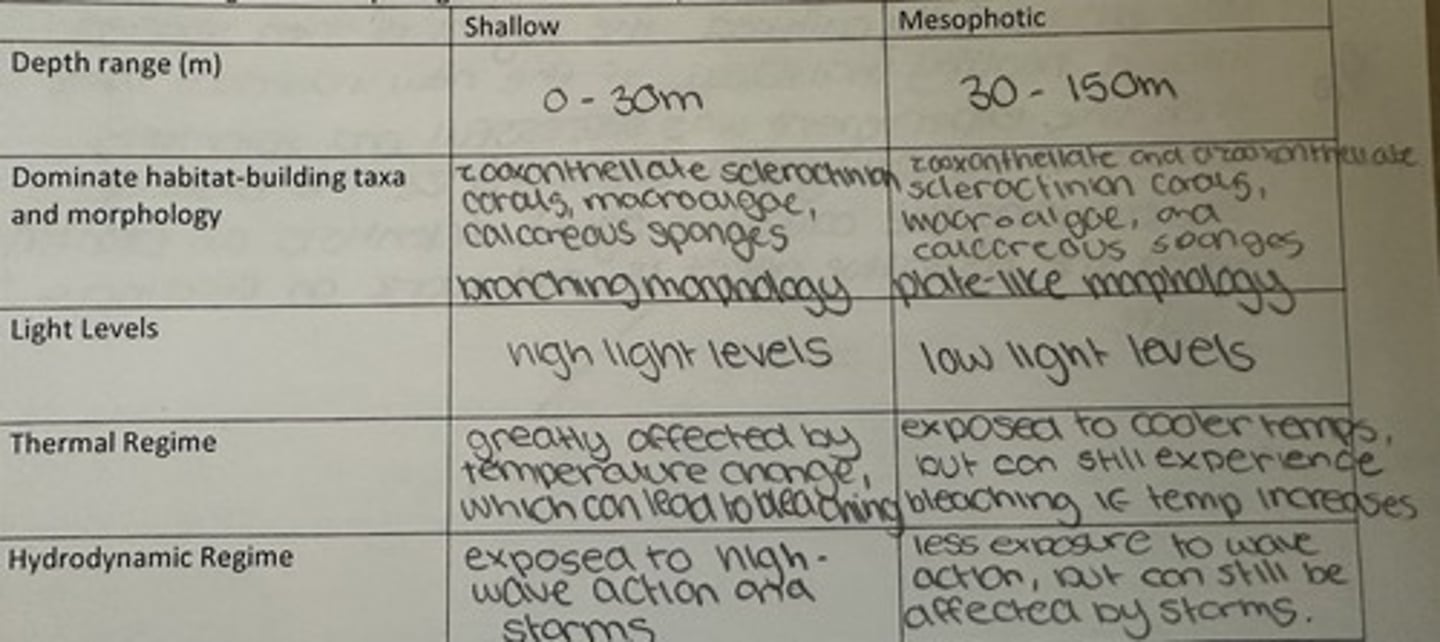 Shallow
Mesophotic
Depth range (m)
0 - 30m
30 - 150m
Dominate habitat-building taxa
and morphology
zooxanthellate scleractinian
corals, macroalgae,
calcareous sponges
branching morphology
zooxanthellate and azooxanthellate
scleractinian corals,
macroalgae, and
calcareous sponges
plate-like morphology
Light Levels
high light levels
low light levels
Thermal Regime
greatly affected by
temperature change,
which can lead to bleaching
exposed to cooler temps,
but can still experience
bleaching if temp increases
Hydrodynamic Regime
exposed to high-
wave action and
storms
less exposure to wave
action, but can still be
affected by storms.